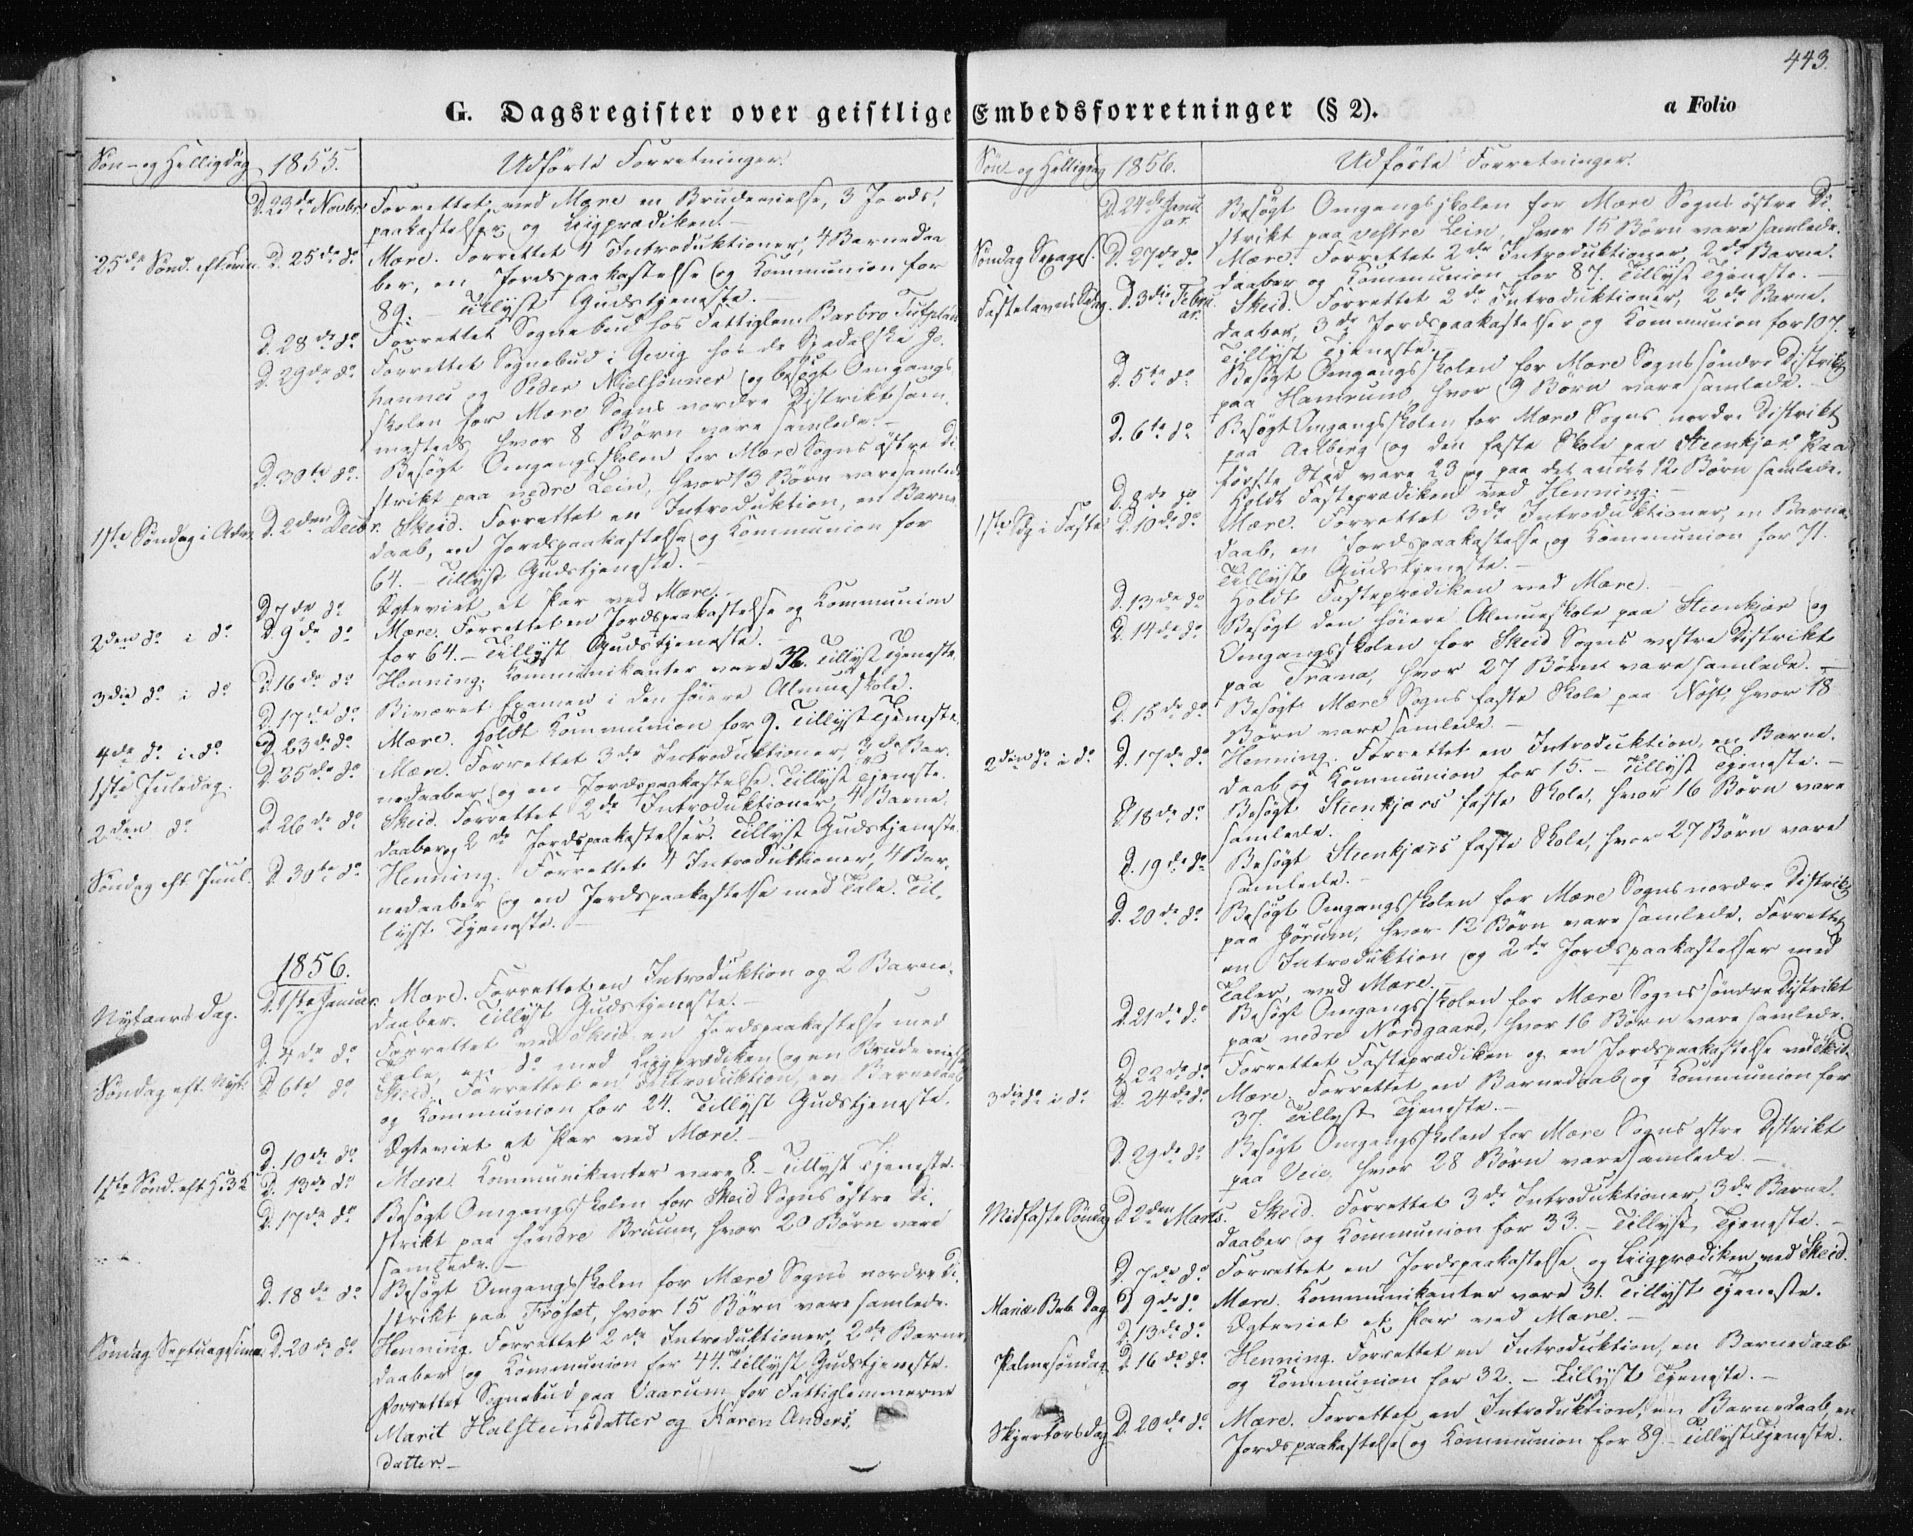 443.
G. Dagsregister over geistlige Embedsforretninger (§ 2). a Folio
Søn- og Helligdag 1855. Udførte Forretninger.
D. 23de Novbr. Forrettet ved Mære en Brudevielse, 3 Jords-
paakastelser og Liigprædiken. -
25de Sønd. eft. Trin. D. 25de do Mære. Forrettet 4 Introduktioner, 4 Barnedaa-
ber, en Jordspaakastelse og Kommunion for
89. - Tillyst Gudstjeneste. -
D. 28de do Forrettet Sognebud hos Fattiglem Barbro
D. 29de do Forrettet Sognebud i Gevig hos de Spedalske Jo-
hannes og Peder Nielsønner og besøgt Omgangs-
skolen for Mære Sogns nordre Distrikt sam-
mesteds, hvor 8 Børn vare samlede. -
D. 30te do Besøgt Omgangsskolen for Mære Sogns østre Di-
strikt paa nedre Lein, hvor 13 Børn vare samlede.
1ste Søndag i Adv. D. 2den Decbr. Skeid. Forrettet en Introduktion, en Barne-
daab, en Jordspaakastelse og Kommunion for
64. - Tillyst Gudstjeneste. -
D. 7de do Ægteviet et Par ved Mære.
2den do i do D. 9de do Mære. Forrettet en Jordspaakastelse og Kommunion
for 64. - Tillyst Gudstjeneste. -
3die do i do D. 16de do Henning. Kommunikanter vare 32. Tillyst Tjeneste.
D. 17de do Biværet Examen i den høiere Almueskole.
4de do i do D. 23de do Mære. Holdt Kommunion for 9. Tillyst Tjeneste.
1ste Juledag. D. 25de do Mære. Forrettet 3de Introduktioner, 3de Bar-
nedaaber og en Jordspaakastelse. Tillyst Tjeneste.
2den do D. 26de do Skeid. Forrettet 2de Introduktioner, 4 Barne-
daaber og 2de Jordspaakastelser. Tillyst Gudstjeneste.
Søndag eft. Juul. D. 30te do Henning. Forrettet 4 Introduktioner, 4 Bar-
nedaaber og en Jordspaakastelse med Tale. Til-
lyst Tjeneste. -
1856.
Nytaars Dag. D. 1ste Januar. Mære. Forrettet en Introduktion og 2 Barne-
daaber. Tillyst Gudstjeneste. -
D. 4de do Forrettet ved Skeid en Jordspaakastelse med
Tale, en do med Liigprædiken og en Brudevielse
Søndag eft. Nyt. D. 6te do Skeid. Forrettet en Introduktion, en Barnedaab
og Kommunion for 24. Tillyst Gudstjeneste.
D. 10de do Ægteviet et Par ved Mære. -
1ste Sønd. eft. H. 3 K. D. 13de do Mære. Kommunikanter vare 8. - Tillyst Tjeneste. -
D. 17de do Besøgt Omgangsskolen for Skeid Sogns østre Di-
strikt paa søndre Bruum, hvor 20 Børn vare
samlede. -
D. 18de do Besøgt Omgangsskolen for Mære Sogns nordre Di-
strikt paa Frøset, hvor 15 Børn vare samlede.
Søndag Septuagesima D. 20de do Henning. Forrettet 2de Introduktioner, 2de Barne-
daaber og Kommunion for 44. Tillyst Gudstjeneste.
Forrettet Sognebud paa Vaarum for Fattiglemmerne
Marit Halsteinsdatter og Karen Anders-
datter. -
Søn- og Helligdag 1856. Udførte Forretninger.
D. 24de Janu- Besøgt Omgangsskolen for Mære Sogns østre Di-
ar. strikt paa vestre Lein, hvor 15 Børn vare samlede.
Søndag Sexages. D. 27de do. Mære. Forrettet 2de Introduktioner, 2de Barne-
daaber og Kommunion for 87. Tillyst Tjeneste. -
Fastelavns Sdg. D. 3die Febru- Skeid. Forrettet 2de Introduktioner, 2de Barne-
ar. daaber, 3de Jordspaakastelser og Kommunion for 107.
Tillyst Tjeneste. -
D. 5te do Besøgt Omgangsskolen for Mære Sogns søndre Distrikt
paa Hamrum, hvor 9 Børn vare samlede. -
D. 6te do Besøgt Omgangsskolen for Mære Sogns nordre Distrikt
paa Aalberg og den faste Skole paa Steenkjær. Paa
første Sted vare 23 og paa det andet 12 Børn samlede.
D. 8de do Holdt Fasteprædiken ved Henning. -
1ste Sdg. i Faste D. 10de do Mære. Forrettet 3de Introduktioner, en Barne-
daab, en Jordspaakastelse og Kommunion for 71.
Tillyst Gudstjeneste. -
D. 13de do Holdt Fasteprædiken ved Mære. -
D. 14de do Besøgt den høiere Almueskole paa Steenkjær og
Omgangsskolen for Skeid Sogns vestre Distrikt
paa Trana, hvor 27 Børn vare samlede. -
D. 15de do Besøgt Mære Sogns faste Skole paa Nøst, hvor 18
Børn vare samlede. -
2den do i do D. 17de do. Henning. Forrettet en Introduktion, en Barne-
daab og Kommunion for 15. - Tillyst Tjeneste. -
D. 18de do. Besøgt Steenkjærs faste Skole, hvor 16 Børn vare
samlede.
D. 19de do Besøgt Steenkjærs faste Skole, hvor 27 Børn vare
samlede. -
D. 20de do Besøgt Omgangsskolen for Mære Sogns nordre Distrikt
paa Jørum, hvor 12 Børn vare samlede. Forrettet
en Introduktion og 2de Jordspaakastelser med
Taler, ved Mære. -
D. 21de do. Besøgt Omgangsskolen for Mære Sogns søndre Distrikt
paa nedre Nordgaard, hvor 16 Børn vare samlede.
D. 22de do. Forrettet Fasteprædiken og en Jordspaakastelse ved Skeid.
3die do i do D. 24de do. Mære. Forrettet en Barnedaab og Kommunion for
37. Tillyst Tjeneste. -
D. 29de do Besøgt Omgangsskolen for Mære Sogns østre Distrikt
paa Veie, hvor 28 Børn vare samlede. -
Midfaste Søndag D. 2den Marts. Skeid. Forrettet 3de Introduktioner, 3de Barne-
daaber og Kommunion for 33. - Tillyst Tjeneste. -
D. 7de do Forrettet en Jordspaakastelse og Liigprædiken ved Skeid.
Mariæ Beb. Dag D. 9de do. Mære. Kommunikanter vare 31. Tillyst Tjeneste.
D. 13de do. Ægteviet et Par ved Mære. -
Palmesøndag. D. 16de do. Henning. Forrettet en Introduktion, en Barnedaab
og Kommunion for 32. - Tillyst Tjeneste. -
Skjertorsdag D. 20de do Mære. Forrettet en Introduktion, en Barnedaab, en
Jordspaakastelse og Kommunion for 89. - Tillyst Tjeneste.